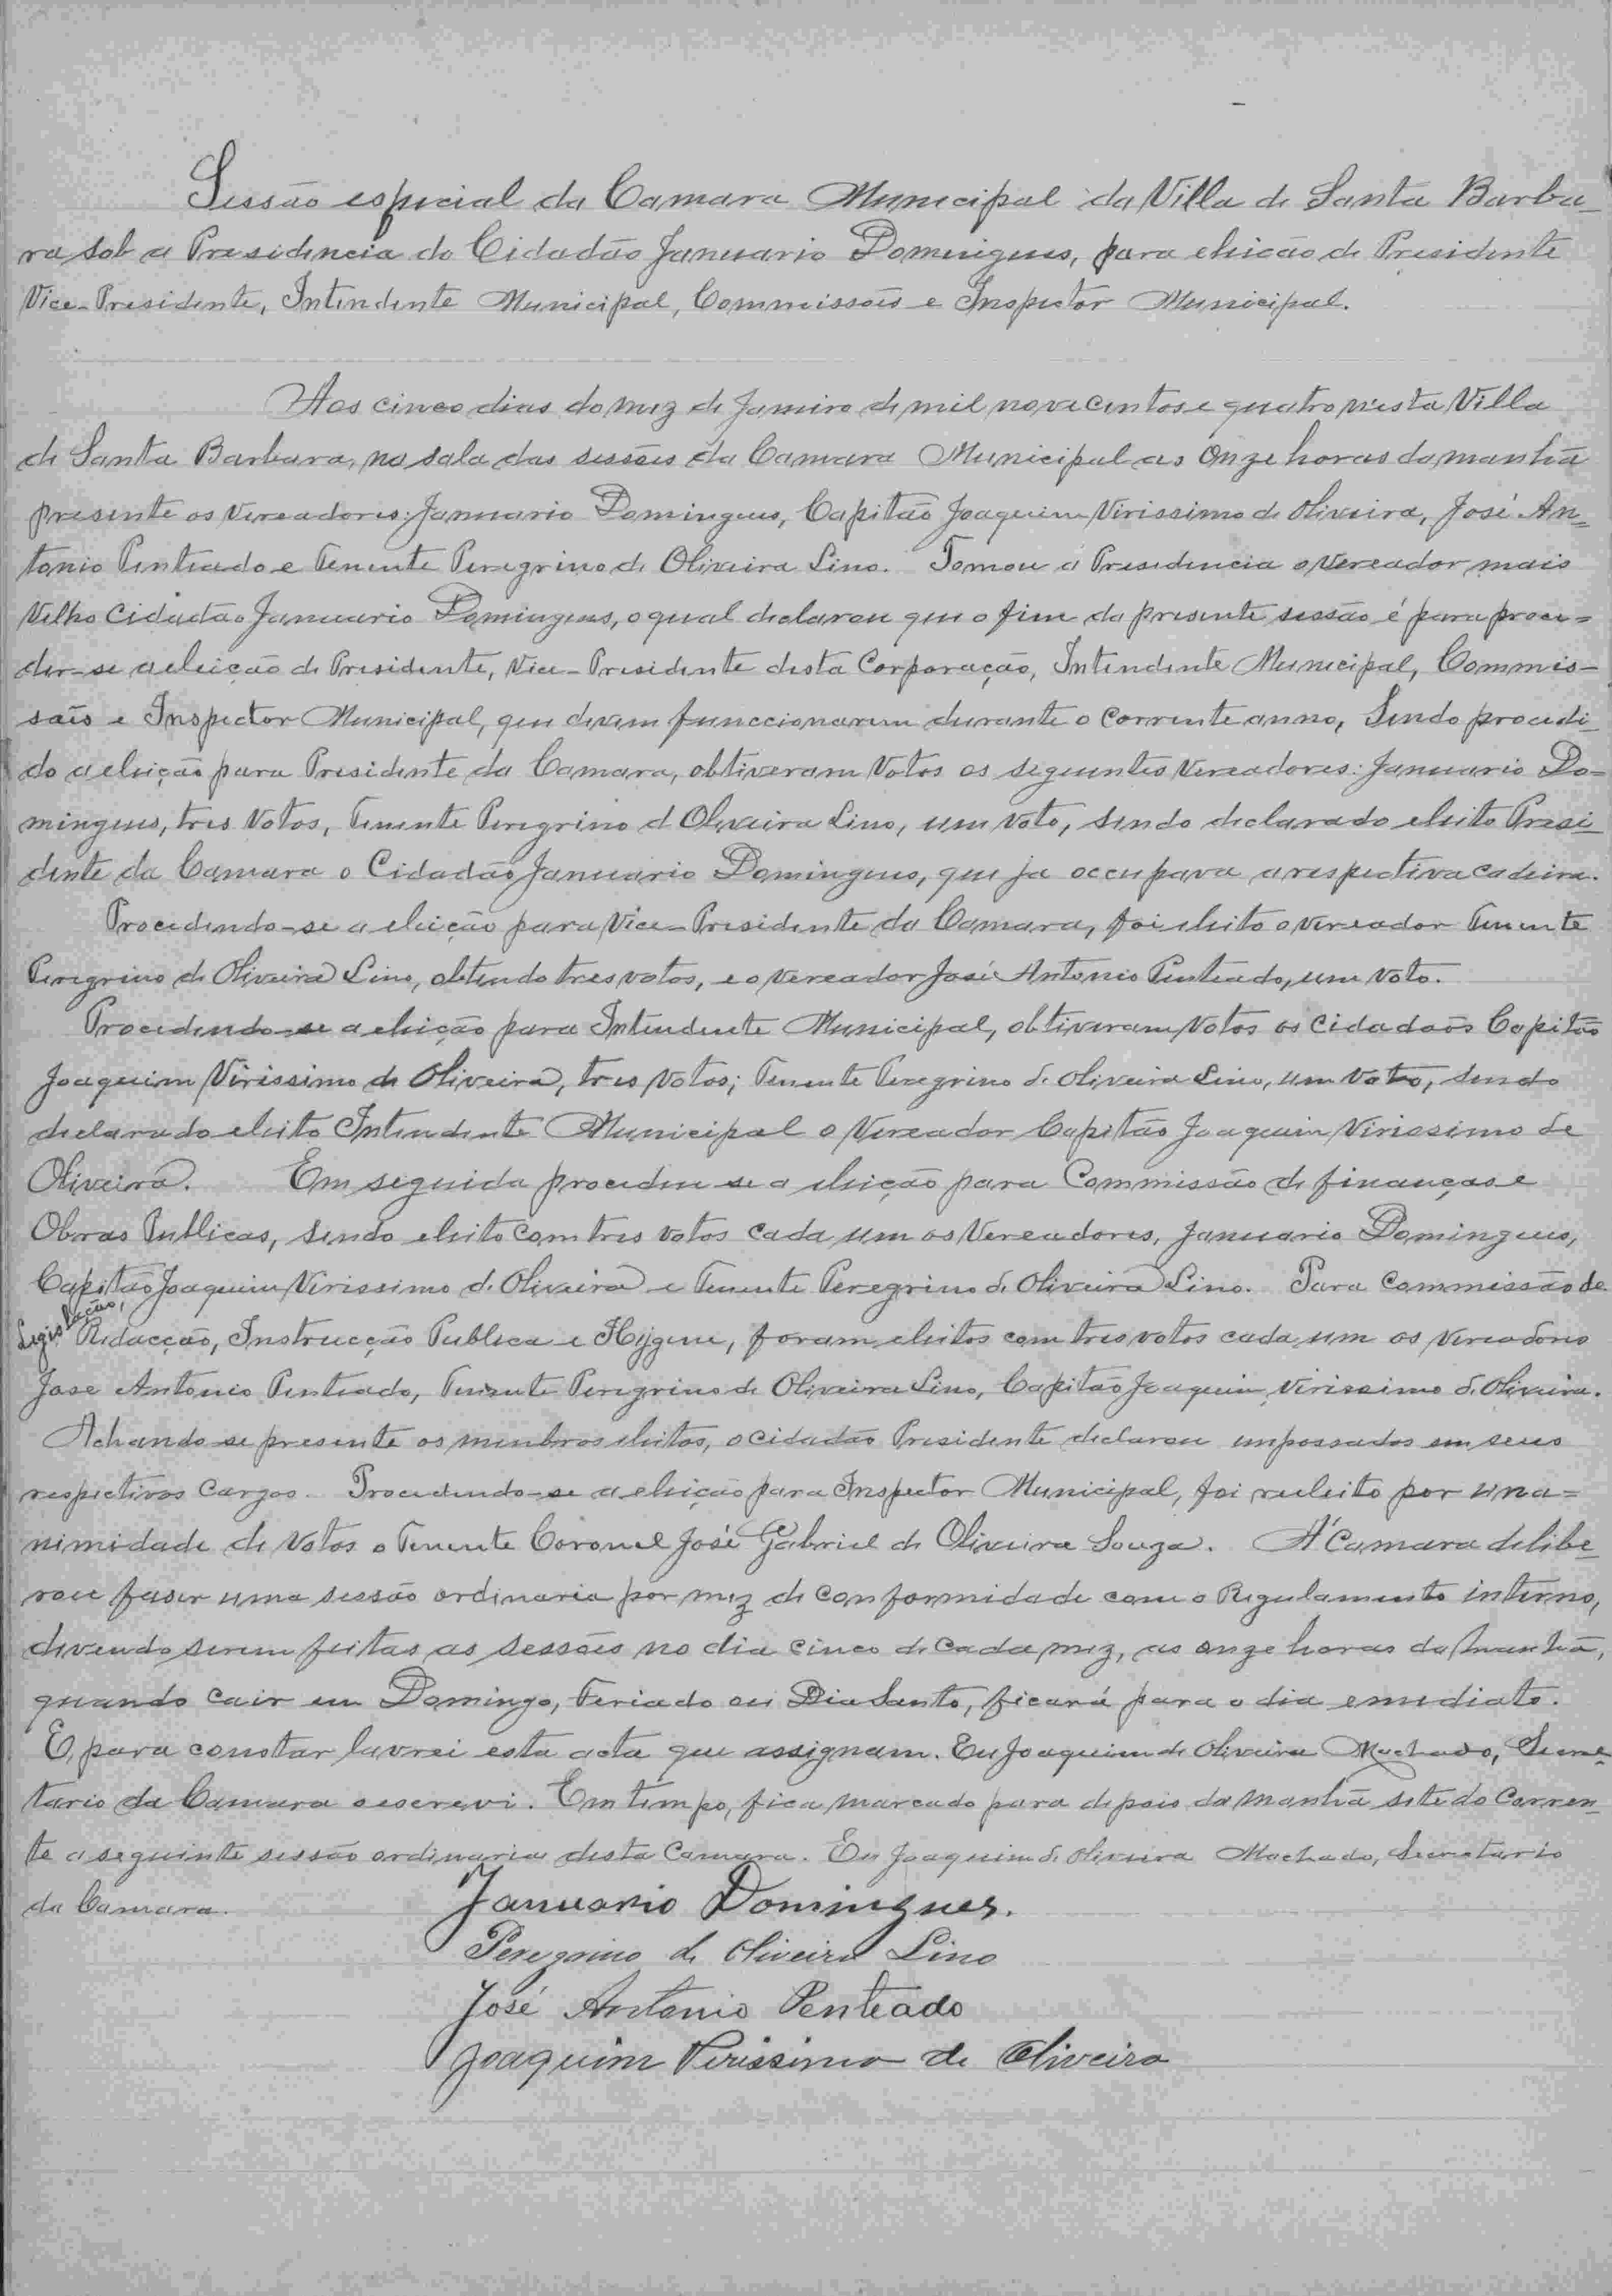 Sessão especial da Camara Municipal da Villa de Santa Barba-
ra sob a Presidencia do Cidadão Januario Domingues, para eleição de Presidente
Vice-Presidente, Intendente Municipal, Commissões e Inspector Municipal.
Aos cinco dias do mez de Janeiro de mil novecentos e quatro n'esta Villa
de Santa Barbara, na sala das sessões da Camara Municipal as Onze horas da manhã
presente os Vereadores: Januario Domingues, Capitão Joaquim Virissimo de Oliveira, José An=
tonio Penteado e Tenente Peregrino de Oliveira Lino. Tomou a Presidencia o Vereador mais
Velho Cidadão Januario Domingues, o qual declarou que o fim da presente sessão é para proce=
der-se a eleição de Presidente, Vice-Presidente desta Corporação, Intendente Municipal, Commis-
saõs e Inspector Municipal, que devem funccionarem durante o corrente anno, Sendo procedi-
do a eleição para Presidente da Camara, obtiveram Votos os seguintes Vereadores: Januario Do=
mingues, tres Votos, Tenente Peregrino d Oliveira Lino, um voto, sendo declarado eleito Presi-
dente da Camara o Cidadão Januario Domingues, que ja occupava a respectiva cadeira.
Procedendo-se a eleição para Vice-Presidente da Camara, foi eleito o Vereador Tenente
Peregrino de Oliveira Lino, obtendo tres votos, e o Vereador José Antonio Penteado, um voto.
Procedendo-se a eleição para Intendente Municipal, obtiveram Votos os Cidadaõs Capitão
Joaquim Virissimo de Oliveira, tres Votos; Tenente Peregrino de Oliveira Lino, um Voto, sendo
declarado eleito Intendente Municipal o Vereador Capitão Joaquim Virissimo de
Oliveira. Em seguida procedeu se a eleição para Commissão de finanças e
Obras Publicas, sendo eleito com tres votos cada um os Vereadores, Januario Domingues,
Capitão Joaquim Virissimo de Oliveira e Tenente Peregrino de Oliveira Lino. Para Commissão de
Legislação, Redacção, Instrucção Publica e Hygene, foram eleitos com tres votos cada um os Vereadores
Jose Antonio Penteado, Tenente Peregrino de Oliveira Lino, Capitão Joaquim Virissimo de Oliveira.
Achando-se presente os membros eleitos, o Cidadão Presidente declarou impossados em seus
respectivos Cargos. Procedendo-se a eleição para Inspector Municipal, foi reeleito por una=
nimidade de Votos o Tenente Coronel José Gabriel de Oliveira Souza. A Camara delibe-
rou faser uma sessão ordinaria por mez de conformidade com o Regulamento interno,
devendo serem feitas as sessões no dia cinco de cada mez, as onze horas da manhã,
quando cair em Domingo, Feriado ou Dia Santo, ficará para o dia emediato.
E, para constar lavrei esta acta que assignam. Eu Joaquim de Oliveira Machado, Secre-
tario da Camara o escrevi. Em tempo, fica marcado para depois da manhã sete do Corren-
te a seguinte sessão ordinaria desta Camara. Eu Joaquim de Oliveira Machado, Secretario
da Camara.
Januario Domingues.
Peregrino de Oliveira Lino
José Antonio Penteado
Joaquim Virissimo de Oliveira